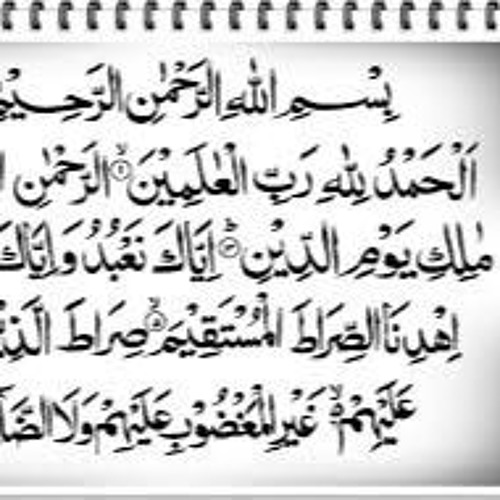 بِسْمِ اللهِ الرَّحْمٰنِ الرَّحِيْمِ
اَلْحَمْدُ لِلهِ رَبِّ الْعٰلَمِيْنَ ۙ۱ الرَّحْمٰنِ
مٰلِكِ يَوْمِ الدِّيْنِ ؕ۳ اِيَّاكَ نَعْبُدُ وَاِيَّاكَ
اِهْدِنَا الصِّرَاطَ الْمُسْتَقِيْمَ ۙ۵ صِرَاطَ
عَلَيْهِمْ ۙ۬ غَيْرِ الْمَغْضُوْبِ عَلَيْهِمْ وَلَا